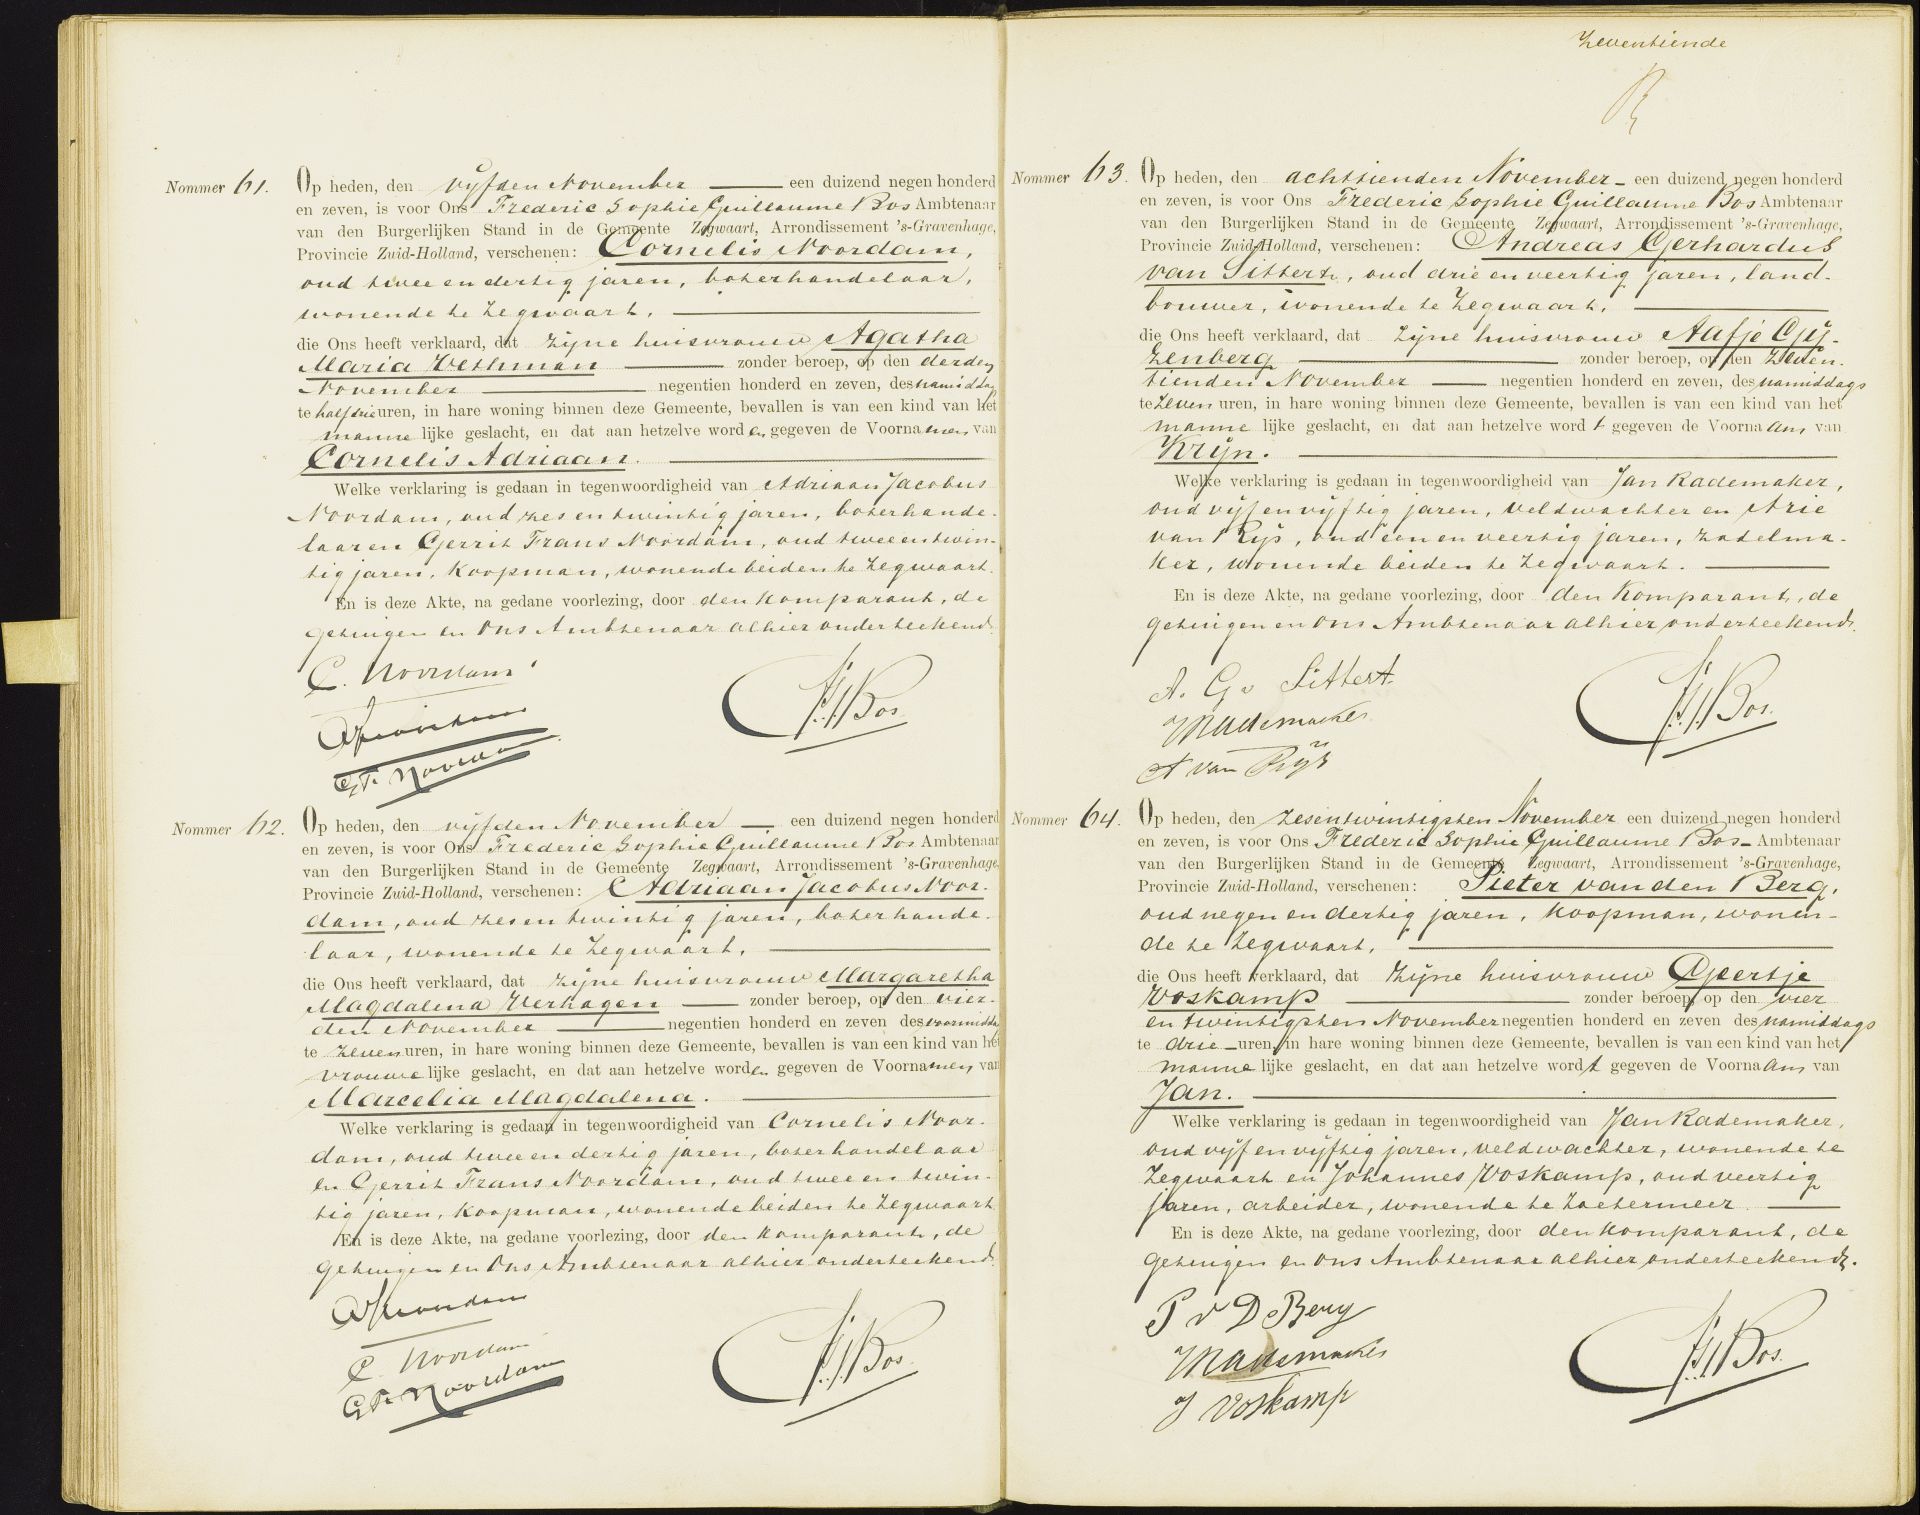 Nommer 61.
Op heden, den vijfden November een duizend negen honderd
en zeven, is voor Ons Frederic Sophie Guillaume Bos Ambtenaar
van den Burgerlijken Stand in de Gemeente Zegwaart, Arrondissement 's-Gravenhage,
Provincie Zuid-Holland, verschenen: Cornelis Noordam,
oud twee en dertig jaren, boterhandelaar,
wonende te Zegwaart.
die Ons heeft verklaard, dat zijne huisvrouw Agatha
Maria Wethman zonder beroep, op den derden
November negentien honderd en zeven, des namiddags
te half drie uren, in hare woning binnen deze Gemeente, bevallen is van een kind van het
mannelijke geslacht, en dat aan hetzelve worden gegeven de Voornamen van
Cornelis Adriaan.
Welke verklaring is gedaan in tegenwoordigheid van Adriaan Jacobus
Noordam, oud zes en twintig jaren, boterhande-
laar en Gerrit Frans Noordam, oud twee en twin-
tig jaren, koopman, wonende beiden te Zegwaart.
En is deze Akte, na gedane voorlezing, door den komparant, de
getuigen en Ons Ambtenaar alhier onderteekend.
C. Noordam
AJNoordam
G.F. Noordam
F.S.G. Bos.
Nommer 62.
Op heden, den vijfden November een duizend negen honderd
en zeven, is voor Ons Frederic Sophie Guillaume Bos Ambtenaar
van den Burgerlijken Stand in de Gemeente Zegwaart, Arrondissement 's-Gravenhage,
Provincie Zuid-Holland, verschenen: Adriaan Jacobus Noor-
dam, oud zes en twintig jaren, boterhande-
laar, wonende te Zegwaart.
die Ons heeft verklaard, dat zijne huisvrouw Margaretha
Magdalena Verhagen zonder beroep, op den vier-
den November negentien honderd en zeven des voormiddags
te zeven uren, in hare woning binnen deze Gemeente, bevallen is van een kind van het
vrouwelijke geslacht, en dat aan hetzelve worden gegeven de Voornamen van
Marcelia Magdalena.
Welke verklaring is gedaan in tegenwoordigheid van Cornelis Noor-
dam, oud twee en dertig jaren, boterhandelaar
en Gerrit Frans Noordam, oud twee en twin-
tig jaren, koopman, wonende beiden te Zegwaart
En is deze Akte, na gedane voorlezing, door den komparant, de
getuigen en Ons Ambtenaar alhier onderteekend.
AJNoordam
C. Noordam
G.F. Noordam
F.S.G. Bos.
Zeventiende
Nommer 63.
Op heden, den achttienden November een duizend negen honderd
en zeven, is voor Ons Frederic Sophie Guillaume Bos Ambtenaar
van den Burgerlijken Stand in de Gemeente Zegwaart, Arrondissement 's-Gravenhage,
Provincie Zuid-Holland, verschenen: Andreas Gerhardus
van Sittert, oud drie en veertig jaren, land-
bouwer, wonende te Zegwaart.
die Ons heeft verklaard, dat zijne huisvrouw Aafje Gij-
zenberg zonder beroep, op den zeven-
tienden November negentien honderd en zeven, des namiddags
te zeven uren, in hare woning binnen deze Gemeente, bevallen is van een kind van het
mannelijke geslacht, en dat aan hetzelve wordt gegeven de Voornaam van
Krijn.
Welke verklaring is gedaan in tegenwoordigheid van Jan Rademaker,
oud vijf en vijftig jaren, veldwachter en Arie
van Rijs, oud een en veertig jaren, zadelma-
ker, wonende beiden te Zegwaart.
En is deze Akte, na gedane voorlezing, door den komparant, de
getuigen en ons Ambtenaar alhier onderteekend.
A. G. v Sittert.
JRademaker
A van Rijs
F.S.G. Bos.
Nommer 64.
Op heden, den zesentwintigsten November een duizend negen honderd
en zeven, is voor Ons Frederic Sophie Guillaume Bos Ambtenaar
van den Burgerlijken Stand in de Gemeente Zegwaart, Arrondissement 's-Gravenhage,
Provincie Zuid-Holland, verschenen: Pieter van den Berg,
oud negen en dertig jaren, koopman, wonen-
de te Zegwaart.
die Ons heeft verklaard, dat zijne huisvrouw Geertje
Voskamp zonder beroep, op den vier
en twintigsten November negentien honderd en zeven des namiddags
te drie uren, in hare woning binnen deze Gemeente, bevallen is van een kind van het
mannelijke geslacht, en dat aan hetzelve wordt gegeven de Voornaam van
Jan.
Welke verklaring is gedaan in tegenwoordigheid van Jan Rademaker,
oud vijf en vijftig jaren, veldwachter, wonende te
Zegwaart en Johannes Voskamp, oud veertig
jaren, arbeider, wonende te Zoetermeer
En is deze Akte, na gedane voorlezing, door den komparant, de
getuigen en ons Ambtenaar alhier onderteekend.
P v D Berg
JRademaker
J Voskamp
F.S.G. Bos.